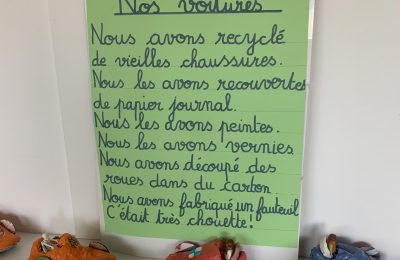 Nos voitures
Nous avons recyclé
de vieilles chaussures.
Nous les avons recouvertes
de papier journal.
Nous les avons peintes.
Nous les avons vernies.
Nous avons découpé des
roues dans du carton
Nous avons fabriqué un fauteuil
C'était très chouette!